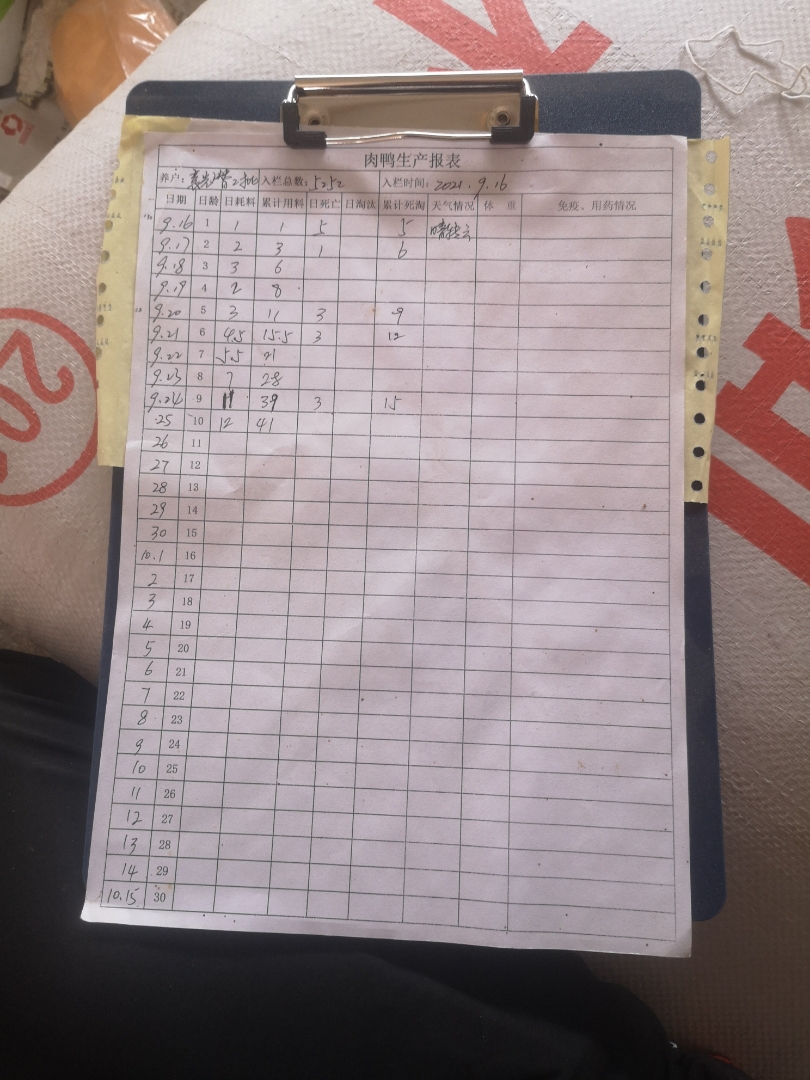 肉鸭生产报表
养户: 2批 入栏总数: 5252 入栏时间: 2021.9.16
日期 日龄 日耗料 累计用料 日死亡 日淘汰 累计死淘 天气情况 体 重 免疫、用药情况
9.16 1 1 1 5 5 晴转云
9.17 2 2 3 1 6
9.18 3 3 6
9.19 4 2 8
9.20 5 3 11 3 9
9.21 6 4.5 15.5 3 12
9.22 7 5.5 21
9.23 8 7 28
9.24 9 11 39 3 15
25 10 12 41
26 11
27 12
28 13
29 14
30 15
10.1 16
2 17
3 18
4 19
5 20
6 21
7 22
8 23
9 24
10 25
11 26
12 27
13 28
14 29
10.15 30